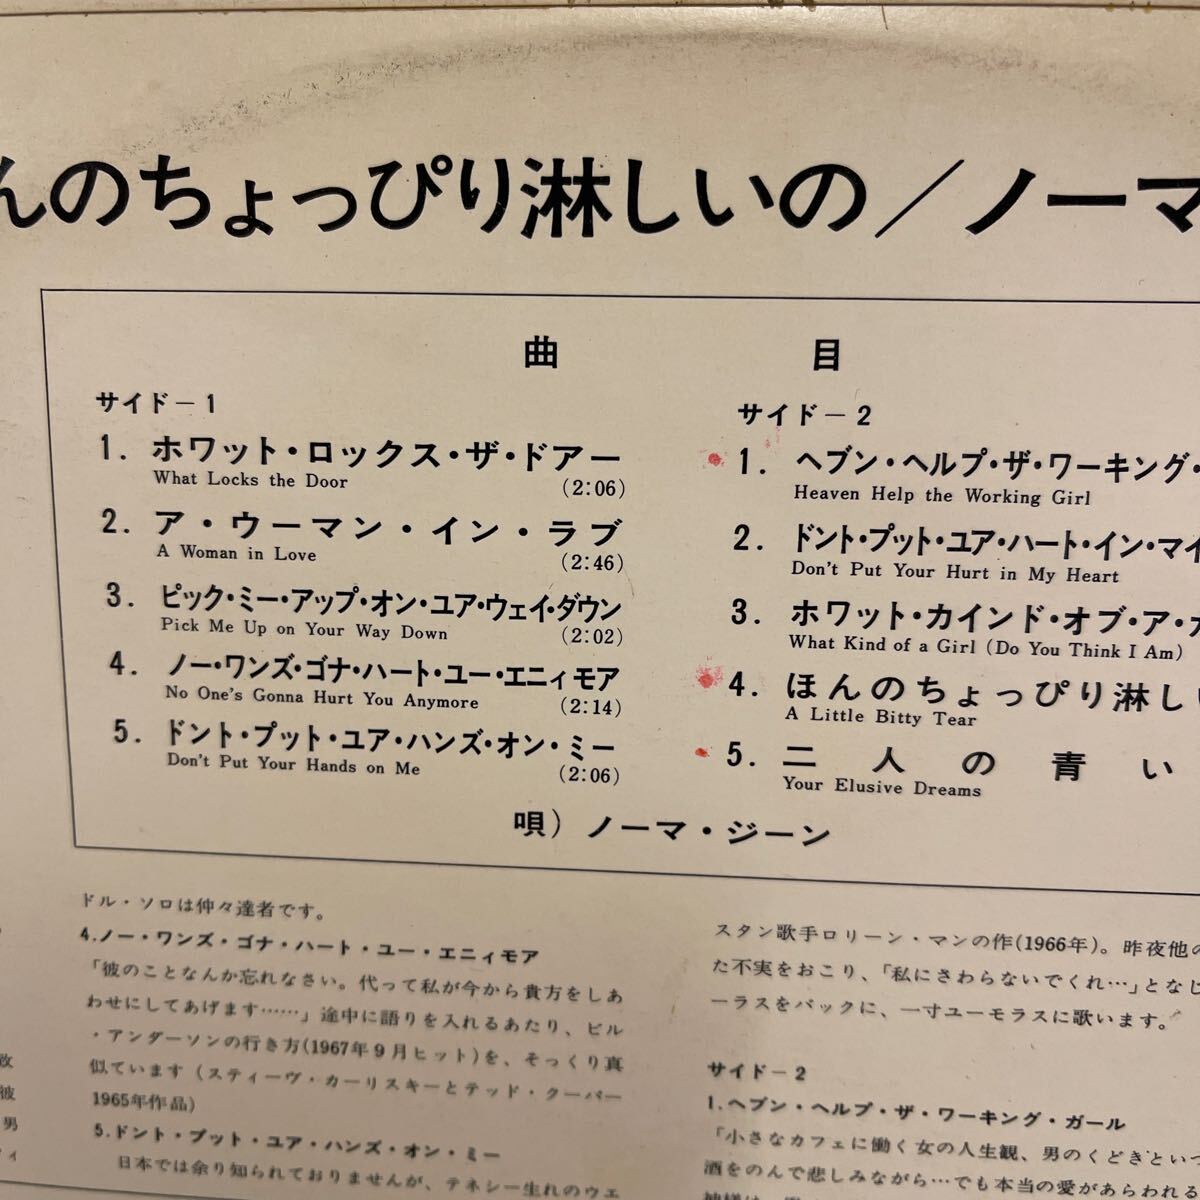 んのちょっぴり淋しいの/ノーマ
曲目
サイド－1
1. ホワット・ロックス・ザ・ドアー
What Locks the Door (2:06)
2. ア・ウーマン・イン・ラブ
A Woman in Love (2:46)
3. ピック・ミー・アップ・オン・ユア・ウェイ・ダウン
Pick Me Up on Your Way Down (2:02)
4. ノー・ワンズ・ゴナ・ハート・ユー・エニィモア
No One's Gonna Hurt You Anymore (2:14)
5. ドント・プット・ユア・ハンズ・オン・ミー
Don't Put Your Hands on Me (2:06)
サイド－2
1. ヘブン・ヘルプ・ザ・ワーキング・
Heaven Help the Working Girl
2. ドント・プット・ユア・ハート・イン・マイ
Don't Put Your Hurt in My Heart
3. ホワット・カインド・オブ・ア・
What Kind of a Girl (Do You Think I Am)
4. ほんのちょっぴり淋し
A Little Bitty Tear
5. 二人の青い
Your Elusive Dreams
唄) ノーマ・ジーン
ドル・ソロは仲々達者です。
4.ノー・ワンズ・ゴナ・ハート・ユー・エニィモア
「彼のことなんか忘れなさい。代って私が今から貴方をしあ
わせにしてあげます……」途中に語りを入れるあたり、ビル
・アンダーソンの行き方(1967年9月ヒット)を、そっくり真
似ています（スティーヴ・カーリスキーとテッド・クーパー
1965年作品)
5.ドント・プット・ユア・ハンズ・オン・ミー
日本では余り知られておりませんが、テネシー生れのウエ
スタン歌手ロリーン・マンの作(1966年)。昨夜他の
た不実をおこり、「私にさわらないでくれ…」となじ
ーラスをバックに、一寸ユーモラスに歌います。
サイド－2
1.ヘブン・ヘルプ・ザ・ワーキング・ガール
「小さなカフェに働く女の人生観、男のくどきといつ
酒をのんで悲しみながら…でも本当の愛があらわれる
彼
男